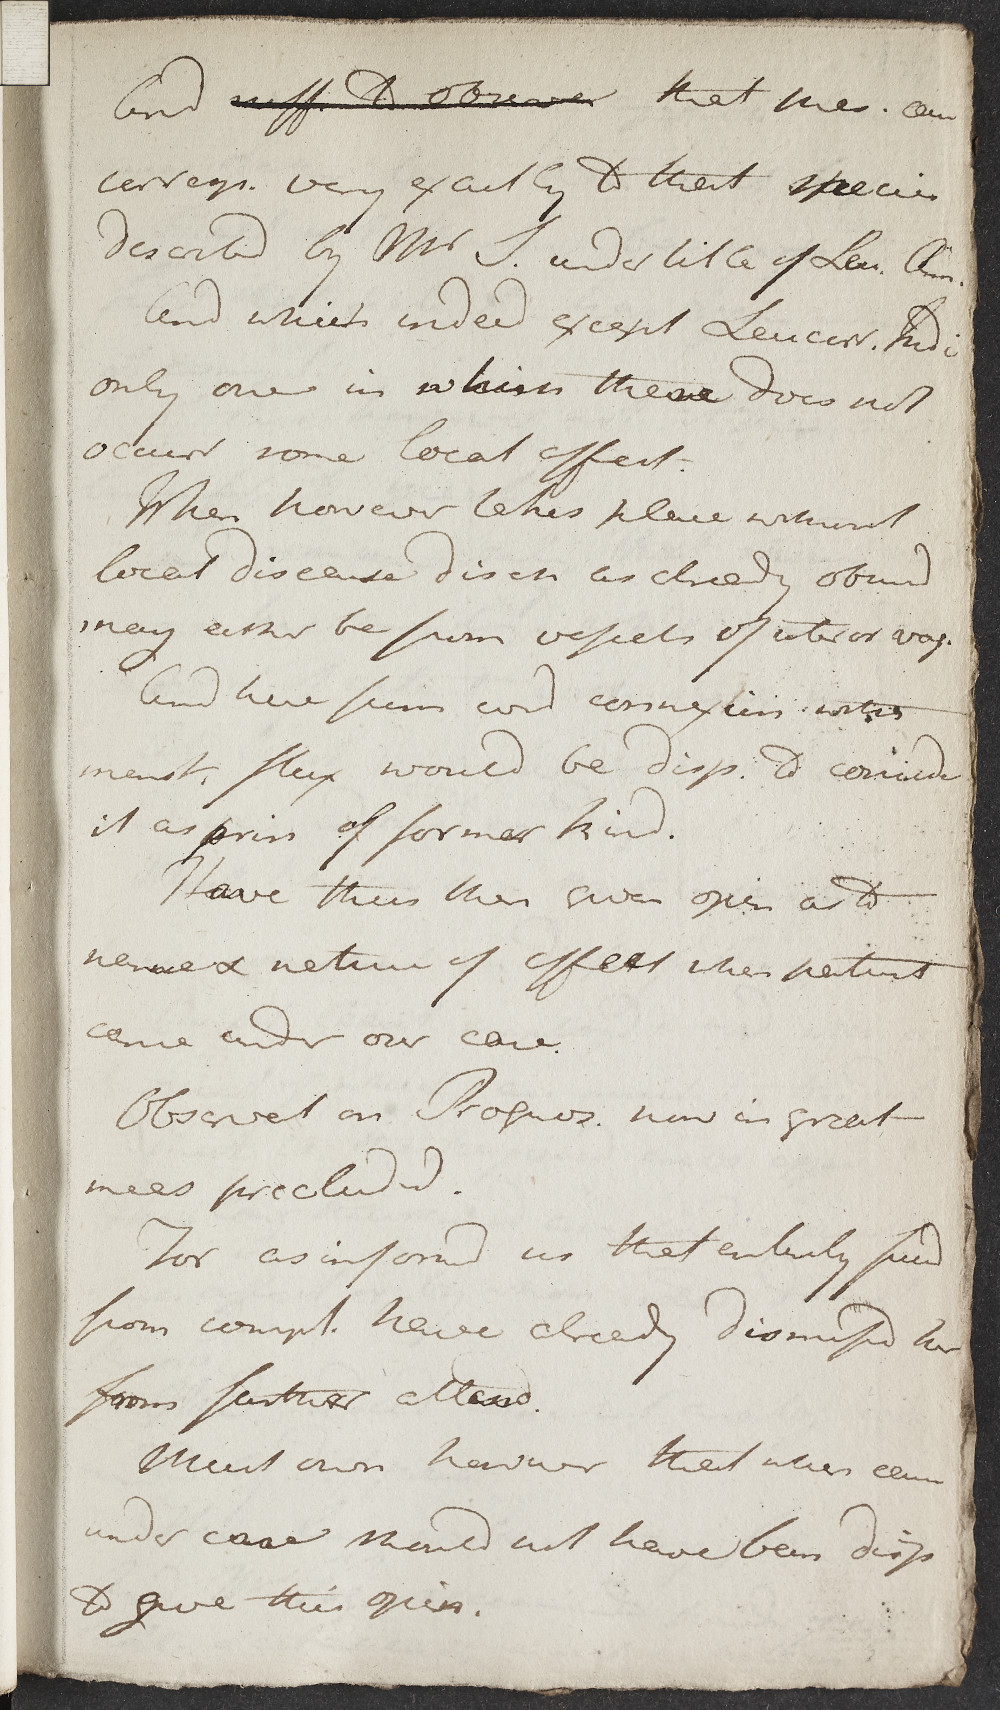 And suff. to observe that pres. case
corresp. very exactly to that species
describd by Mr S. under title of Leu. Am.
And which indeed except Leucorr. Indi
only one in which there does not
occurr some local effect.
When however takes place without
local disease disch as already observd
may either be from vessels of uter or vag.
And here from cord connexion with
menst. flux would be disp. to consider
it as prin of former kind.
Have thus then given opin as to
name & nature of affect when patient
came under our care.
Observat on Prognos. now in great
meas precluded.
For as informd us that entirely freed
from compl. have already dismissd her
from further attend.
Must own however that when came
under care should not have been disp
to give this opin.